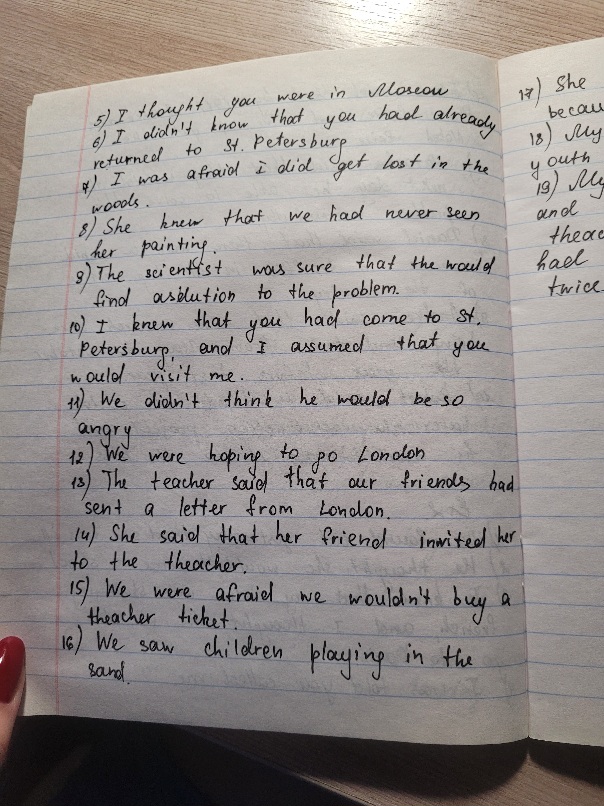 5) I thought you were in Moscow
6) I didn't know that you had already
returned to St. Petersburg
7) I was afraid I did get lost in the
woods.
8) She knew that we had never seen
her painting.
9) The scientist was sure that the would
find asolution to the problem.
10) I knew that you had come to St.
Petersburg, and I assumed that you
would visit me.
11) We didn't think he would be so
angry
12) We were hoping to go London
13) The teacher said that our friends had
sent a letter from London.
14) She said that her friend invited her
to the theacher.
15) We were afraid we wouldn't buy a
theacher ticket.
16) We saw children playing in the
sand.
17) She
becau
18) My
youth
19) My
and
theac
had
twice